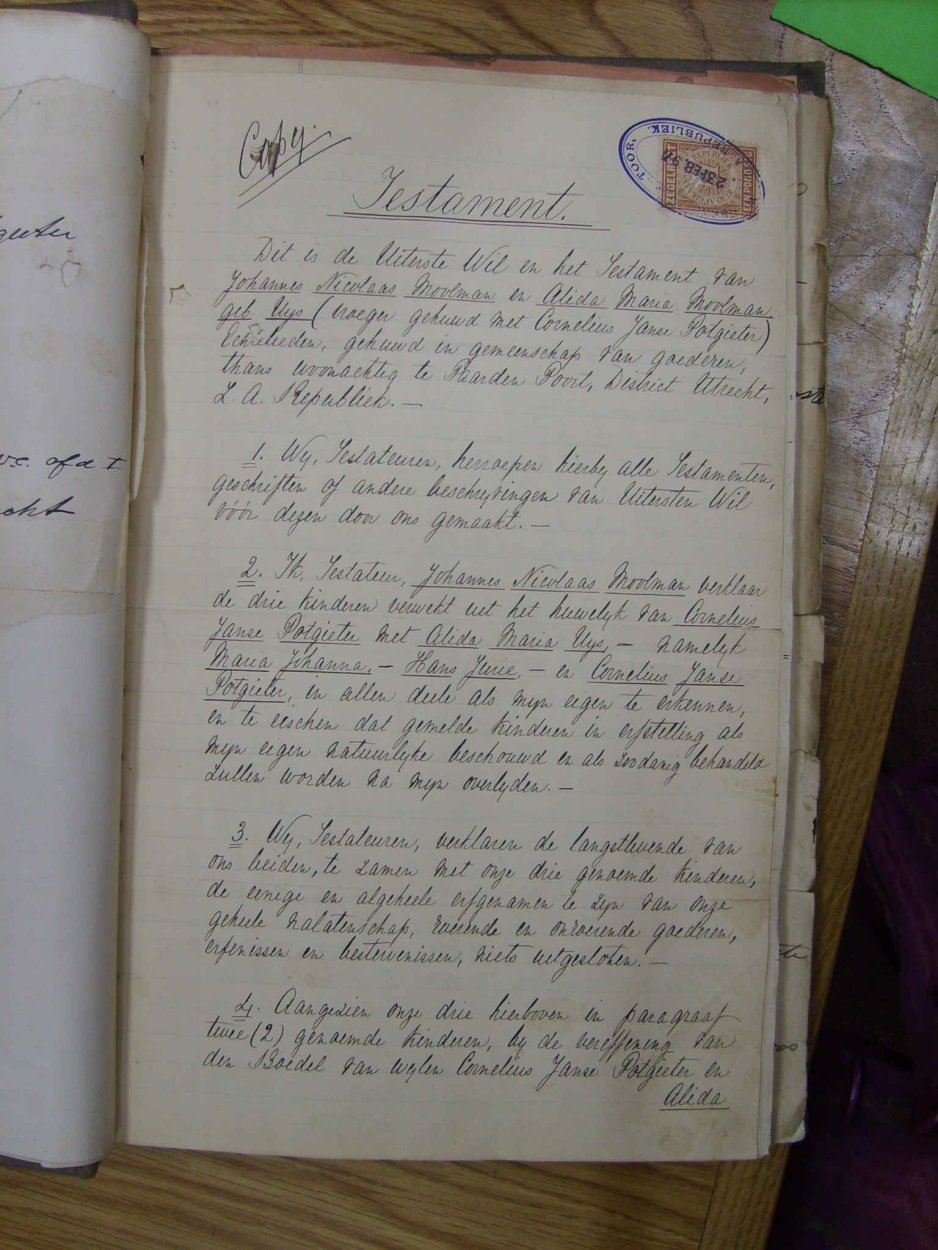 geeter
w.c. of d T
cht
Copy.
TOOR, REPUBLIEK.
23 FEB. 97
ZEGELRECHT
EEN POND
Testament.
Dit is de Uiterste Wil en het Testament van
Johannes Nicolaas Moolman en Alida Maria Moolman
geb. Uys (vroeger gehuwd met Cornelius Janse Potgieter)
Echtelieden, gehuwd in gemeenschap van goederen,
thans woonachtig te Paarden Poort, District Utrecht,
Z. A. Republiek. —
1. Wy, Testateuren, herroepen hierby alle Testamenten,
geschriften of andere beschryvingen van Uitersten Wil
vóór dezen door ons gemaakt. —
2. Ik, Testateur, Johannes Nicolaas Moolman verklaar
de drie kinderen verwekt uit het huwelyk van Cornelius
Janse Potgieter met Alida Maria Uys, — namelyk
Maria Johanna, — Hans Jurie, — en Cornelius Janse
Potgieter, in allen deele als myn eigen te erkennen,
en te eeschen dat gemelde kinderen in erfstelling als
myn eigen natuurlyke beschouwd en als zoodanig behandeld
zullen worden na myn overlyden. —
3. Wy, Testateuren, verklaren de langstlevende van
ons beiden, te zamen met onze drie genoemde kinderen,
de eenige en algeheele erfgenamen te zyn van onze
geheele nalatenschap, roerende en onroerende goederen,
erfenissen en besterfenissen, niets uitgesloten. —
4. Aangezien onze drie hierboven in paragraaf
twee (2) genoemde kinderen, by de vereffening van
den Boedel van wylen Cornelius Janse Potgieter en
Alida